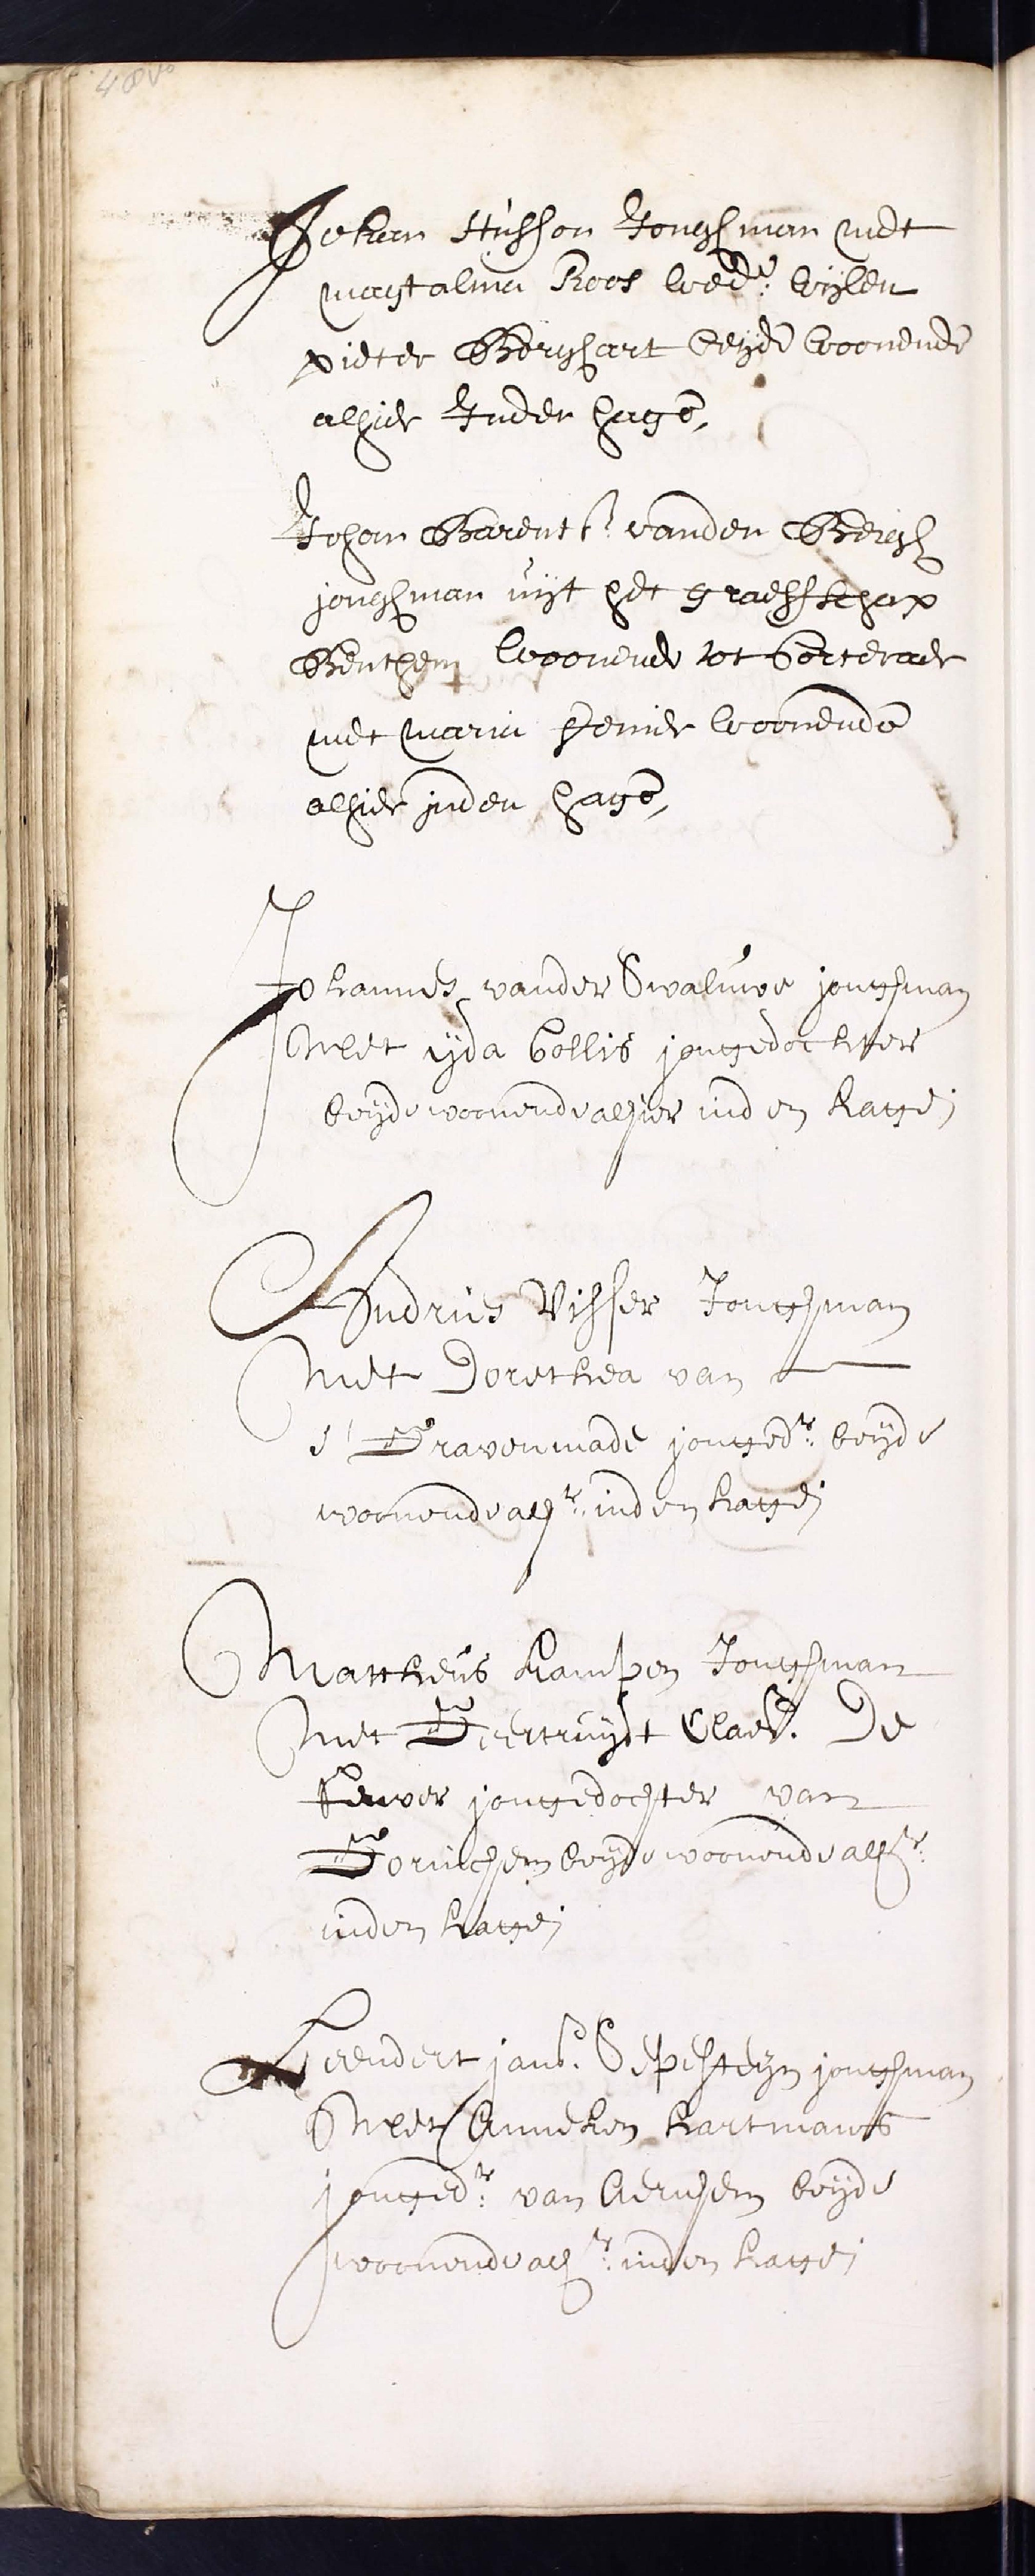 48vo
Jehan Husson Jonghman met
magtalina Roos wedr: wijlen
pieter Berghart beyde woonende
alhier Inder hage,
Johan Barents vanden Bergh
jonghman uijt het graeffschap
Benthem woonende tot
met maria woonende
alhier inden hage,
Johannes vander Swaluwe jonghman
Met ijda Collis jongedochter
beijde woonende alhier inden hage
Andries Visser Jonghman
Met Dorethea van
s' Gravenmade jongedr: beijde
woonende alhr: inden hage
Mattheus Kampen Jonghman
Met Geertruijt Claes. De
jongedochter van
Gorinchem beijde woonende alhr:
inden hage
Leendert jans. Sepesteijn jonghman
Met Anneken hartmans
jongedr: van Aernhem beijde
woonende alhr: inden hage